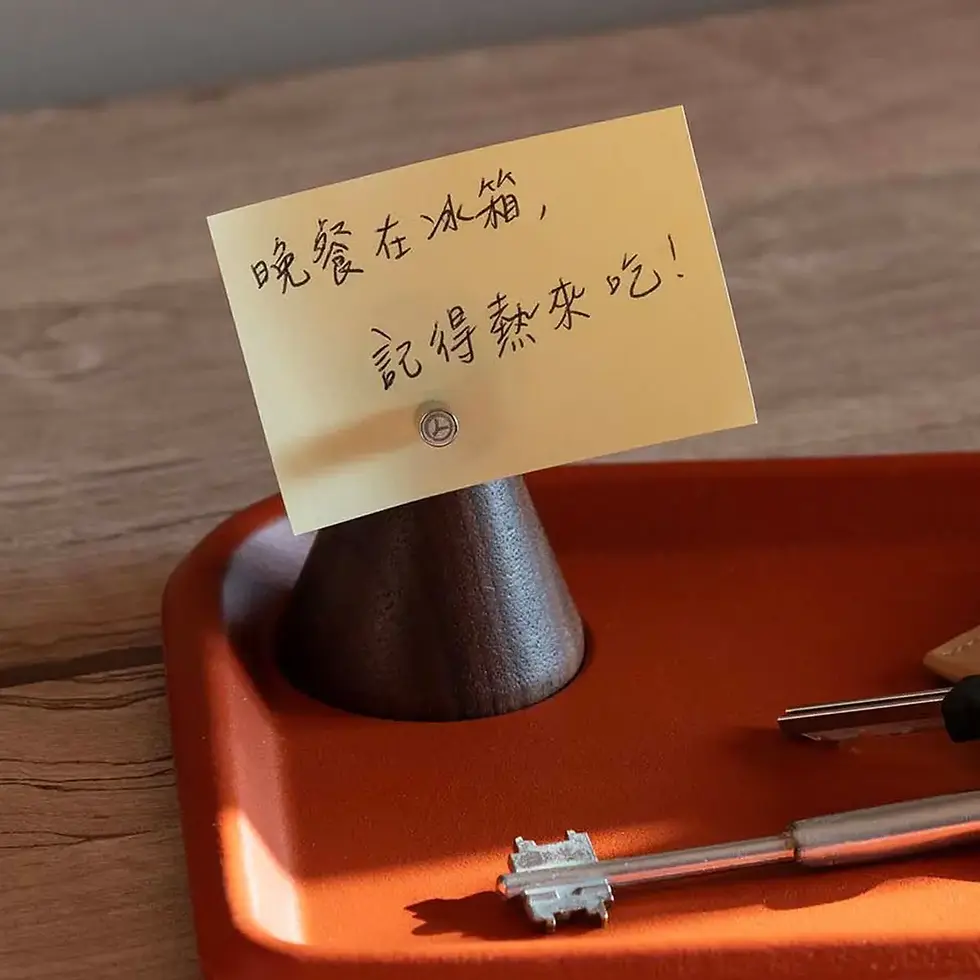 晚餐在冰箱，
記得熱來吃！